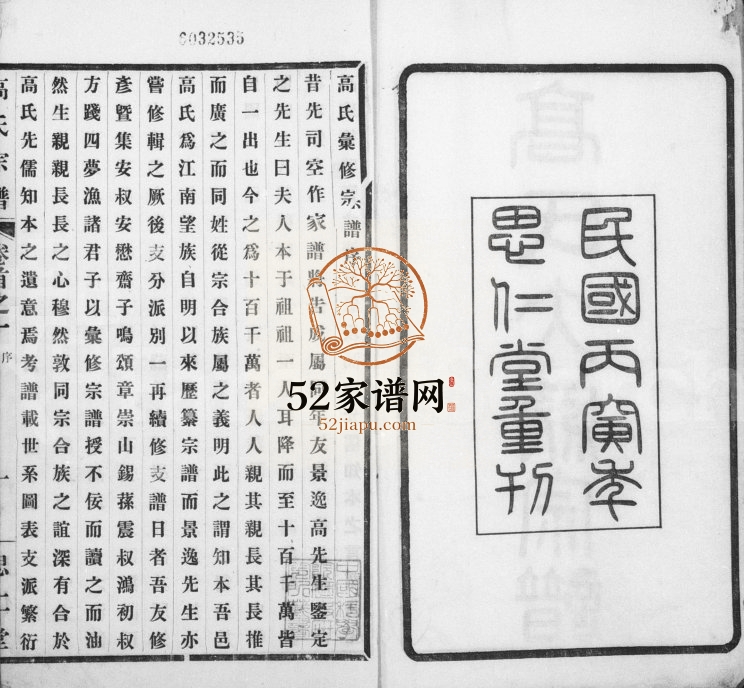 民國丙寅年
思仁堂重刊
0032535
高氏彙修宗譜序
昔先司空作家譜將告成屬同年友景逸高先生鑒定
之先生曰夫人本于祖祖一人耳降而至十百千萬皆
自一出也今之爲十百千萬者人人親其親長其長推
而廣之而同姓從宗合族屬之義明此之謂知本吾邑
高氏爲江南望族自明以來歷纂宗譜而景逸先生亦
嘗修輯之厥後支分派別一再續修支譜日者吾友修
彥曁集安叔安懋齋子鳴頌章崇山錫蓀震叔鴻初叔
方踐四夢漁諸君子以彙修宗譜授不佞而讀之而油
然生親親長長之心穆然敦同宗合族之誼深有合於
高氏先儒知本之遺意焉考譜載世系圖表支派繁衍
高氏宗譜 卷首之一 序 一 思仁堂
52家谱网
52jiapu.com